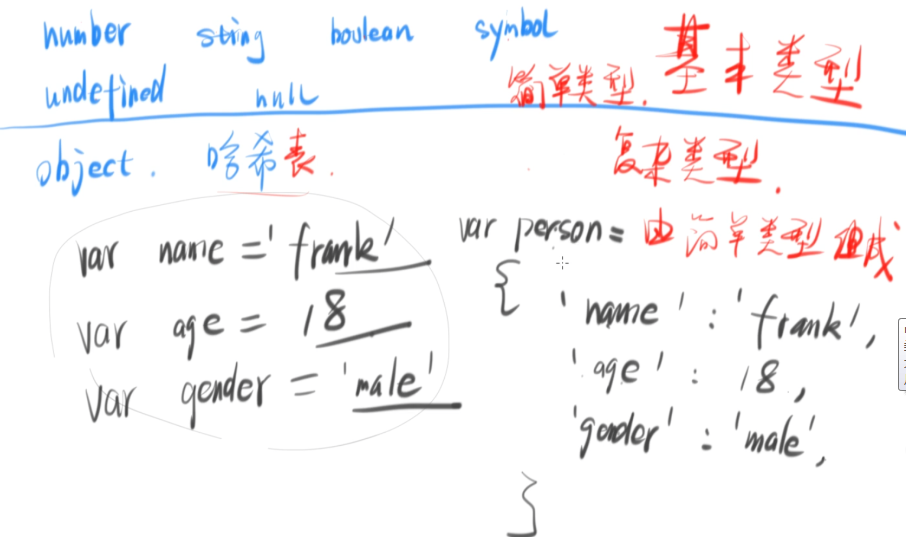 number sting boulean symbol
undefined null 简单类型. 基本类型
object. 哈希表. 复杂类型.
var name = 'frank'
var age = 18
var gender = 'male'
var person = 由简单类型组成
{
'name' : 'frank',
'age' : 18,
'gender' : 'male',
}